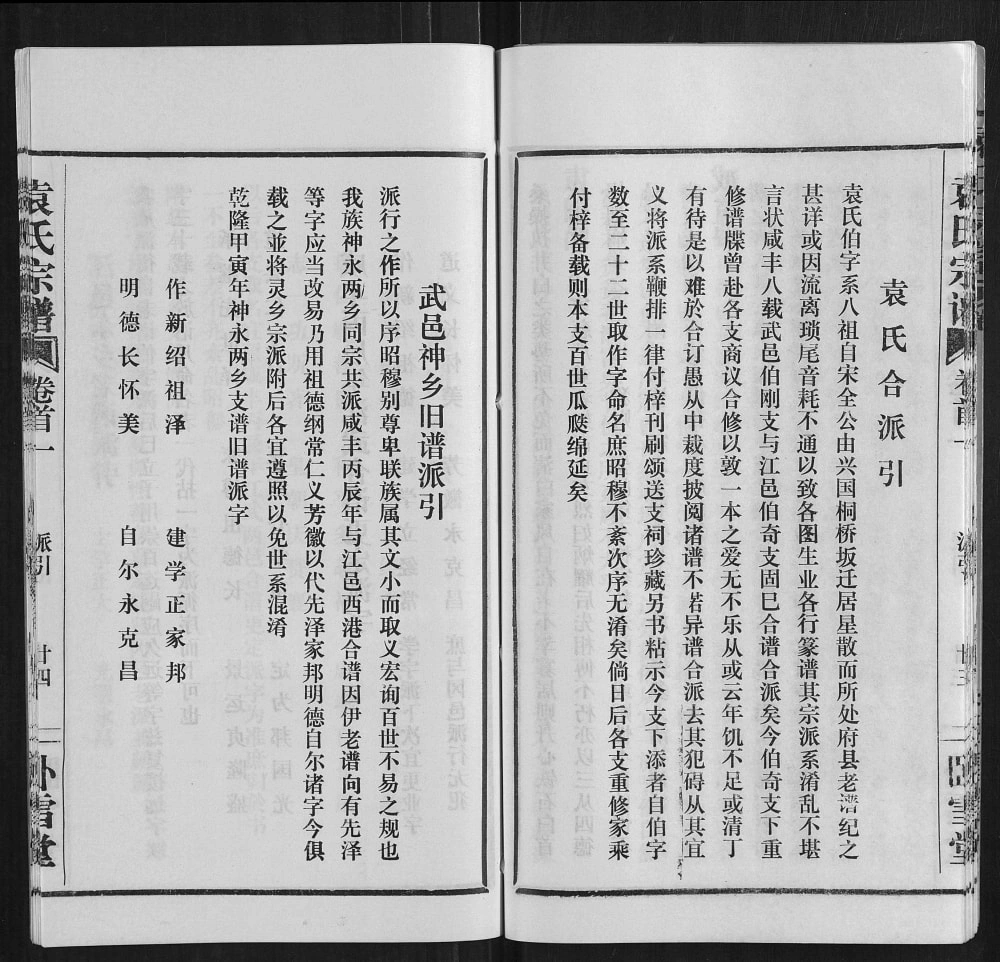 袁氏合派引
袁氏伯字系八祖自宋全公由兴国桐桥坂迁居星散而所处府县老谱纪之
甚详或因流离琐尾音耗不通以致各图生业各行篆谱其宗派系淆乱不堪
言状咸丰八载武邑伯刚支与江邑伯奇支固巳合谱合派矣今伯奇支下重
修谱牒曾赴各支商议合修以敦一本之爱无不乐从或云年饥不足或清丁
有待是以难於合订愚从中裁度披阅诸谱不若异谱合派去其犯碍从其宜
义将派系鞭排一律付梓刊刷颁送支祠珍藏另书粘示今支下添者自伯字
数至二十二世取作字命名庶昭穆不紊次序无淆矣倘日后各支重修家乘
付梓备载则本支百世瓜瓞绵延矣
武邑神乡旧谱派引
派行之作所以序昭穆别尊卑联族属其文小而取义宏询百世不易之规也
我族神永两乡同宗共派咸丰丙辰年与江邑西港合谱因伊老谱向有先泽
等字应当改易乃用祖德纲常仁义芳徽以代先泽家邦明德自尔诸字今俱
载之並将灵乡宗派附后各宜遵照以免世系混淆
乾隆甲寅年神永两乡支谱旧谱派字
作新绍祖泽 建学正家邦
明德长怀美 自尔永克昌
袁氏宗谱 卷首一 派引 廿四 卧雪堂